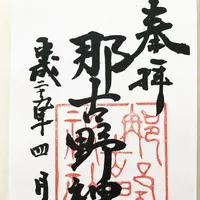 奉拝
那古野神
平成二十五年四月